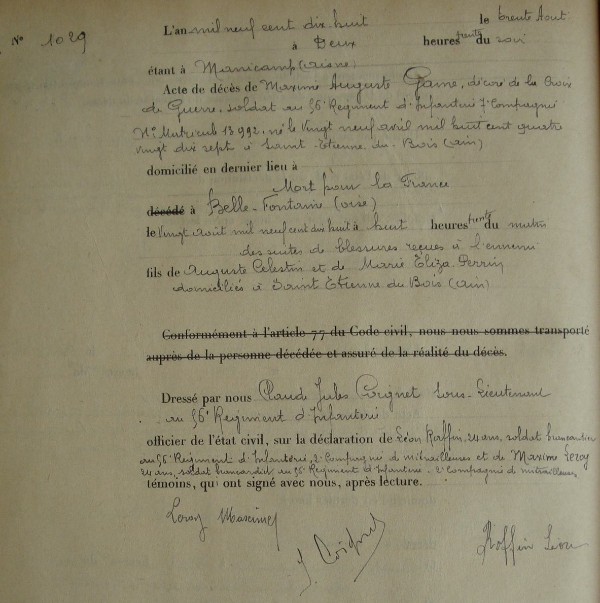 N° 1029
L'an mil neuf cent dix huit le trente Août
à Deux heures trente du soir
étant à Manicamp (Aisne)
Acte de décès de Maxime Auguste Game, décoré de la Croix
de Guerre, soldat au 56e Régiment d'Infanterie 7e Compagnie
N° Matricule 13992, né le Vingt neuf avril mil huit cent quatre
vingt dix sept à Saint-Etienne-du-Bois (Ain)
domicilié en dernier lieu à
Mort pour la France
décédé à Belle-Fontaine (Oise)
le Vingt Août mil neuf cent dix huit à huit heures trente du matin
des suites de blessures reçues à l'ennemi
fils de Auguste Célestin et de Marie Eliza Perrin
domiciliés à Saint Etienne du Bois (Ain)
Conformément à l'article 77 du Code civil, nous nous sommes transporté
auprès de la personne décédée et assuré de la réalité du décès.
Dressé par nous Claude Jules Coignet Sous-Lieutenant
au 56e Régiment d'Infanterie
officier de l'état civil, sur la déclaration de Léon Raffin, 24 ans, soldat brancardier
au 56e Régiment d'Infanterie, 2e Compagnie de mitrailleuses et de Maxime Leroy
24 ans, soldat brancardier au 56e Régiment d'Infanterie - 2e Compagnie de mitrailleuses
témoins, qui ont signé avec nous, après lecture.
Leroy Maxime
J. Coignet
Raffin Léon